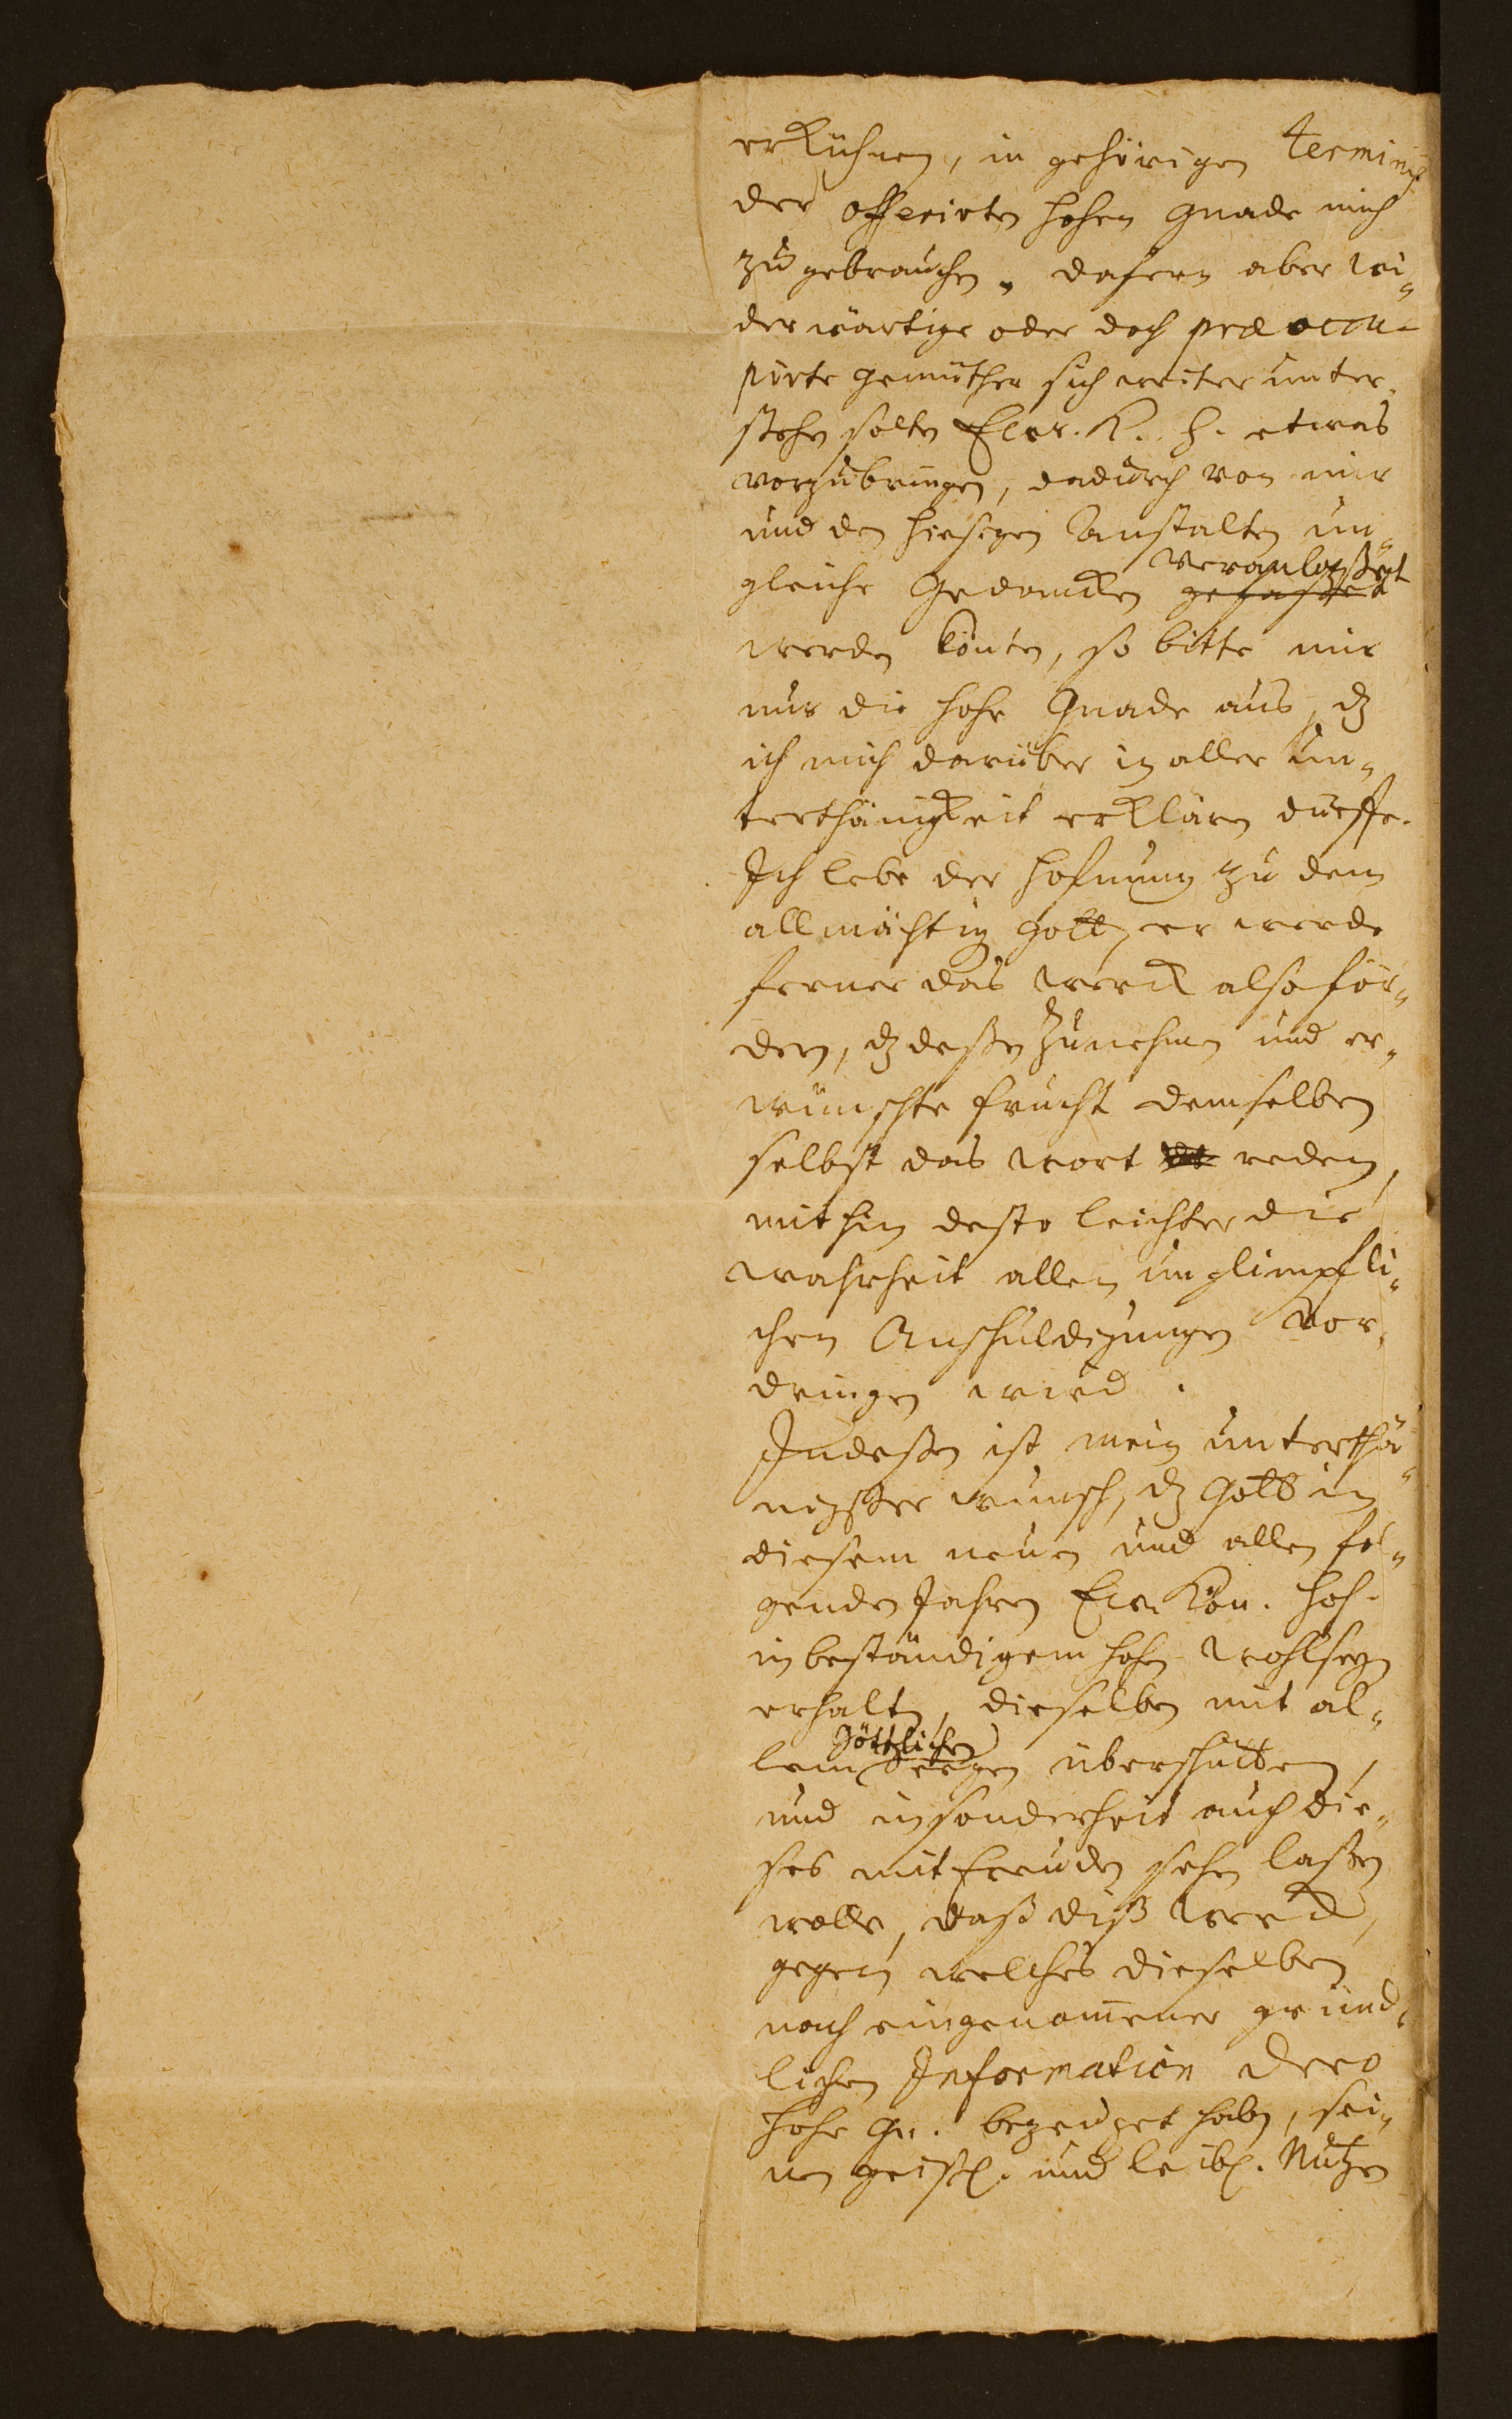 erkühnen, in gehörigen terminis
der offerirten hohen Gnade mich
zu gebrauchen. dafern aber wi-
derwärtige oder doch præoccu-
pirte gemüther sich weiter unter-
stehen solten Ewr. K. H. etwas
vorzubringen, dadurch von mir
und den hiesigen Anstalten un-
veranlasset
gleiche Gedancken gefasset
werden könten, so bitte mir
nur die hohe Gnade aus, dz
ich mich darüber in aller Un-
terthänigkeit erklären dürffe.
Ich lebe der Hofnung zu dem
allmächtig Gott, er werde
ferner das werck also för-
dern, dz deßen Zunehmen und er-
wünschte frucht demselben
selbst das wort reden,
mithin desto leichter die
wahrheit allen unglimpfli-
chen Anschuldigungen vor-
dringen wird.
Indeßen ist mein unterthä-
nigster wunsch, dz Gott in
diesem neuen und allen fol-
genden Jahren Ew. Kön. Hoh.
in beständigem hohen wohlseyn
erhalten, dieselben mit al-
Göttlichen
lem Seegen überschütten,
und insonderheit auch die-
ses mit freuden sehen laßen
wolle, daß diß werck,
gegen welches dieselben
nach eingenomener gründ-
lichen Information dero
hohe Gn. bezeuget haben, sei-
nen geistl. und leibl. Nutzen